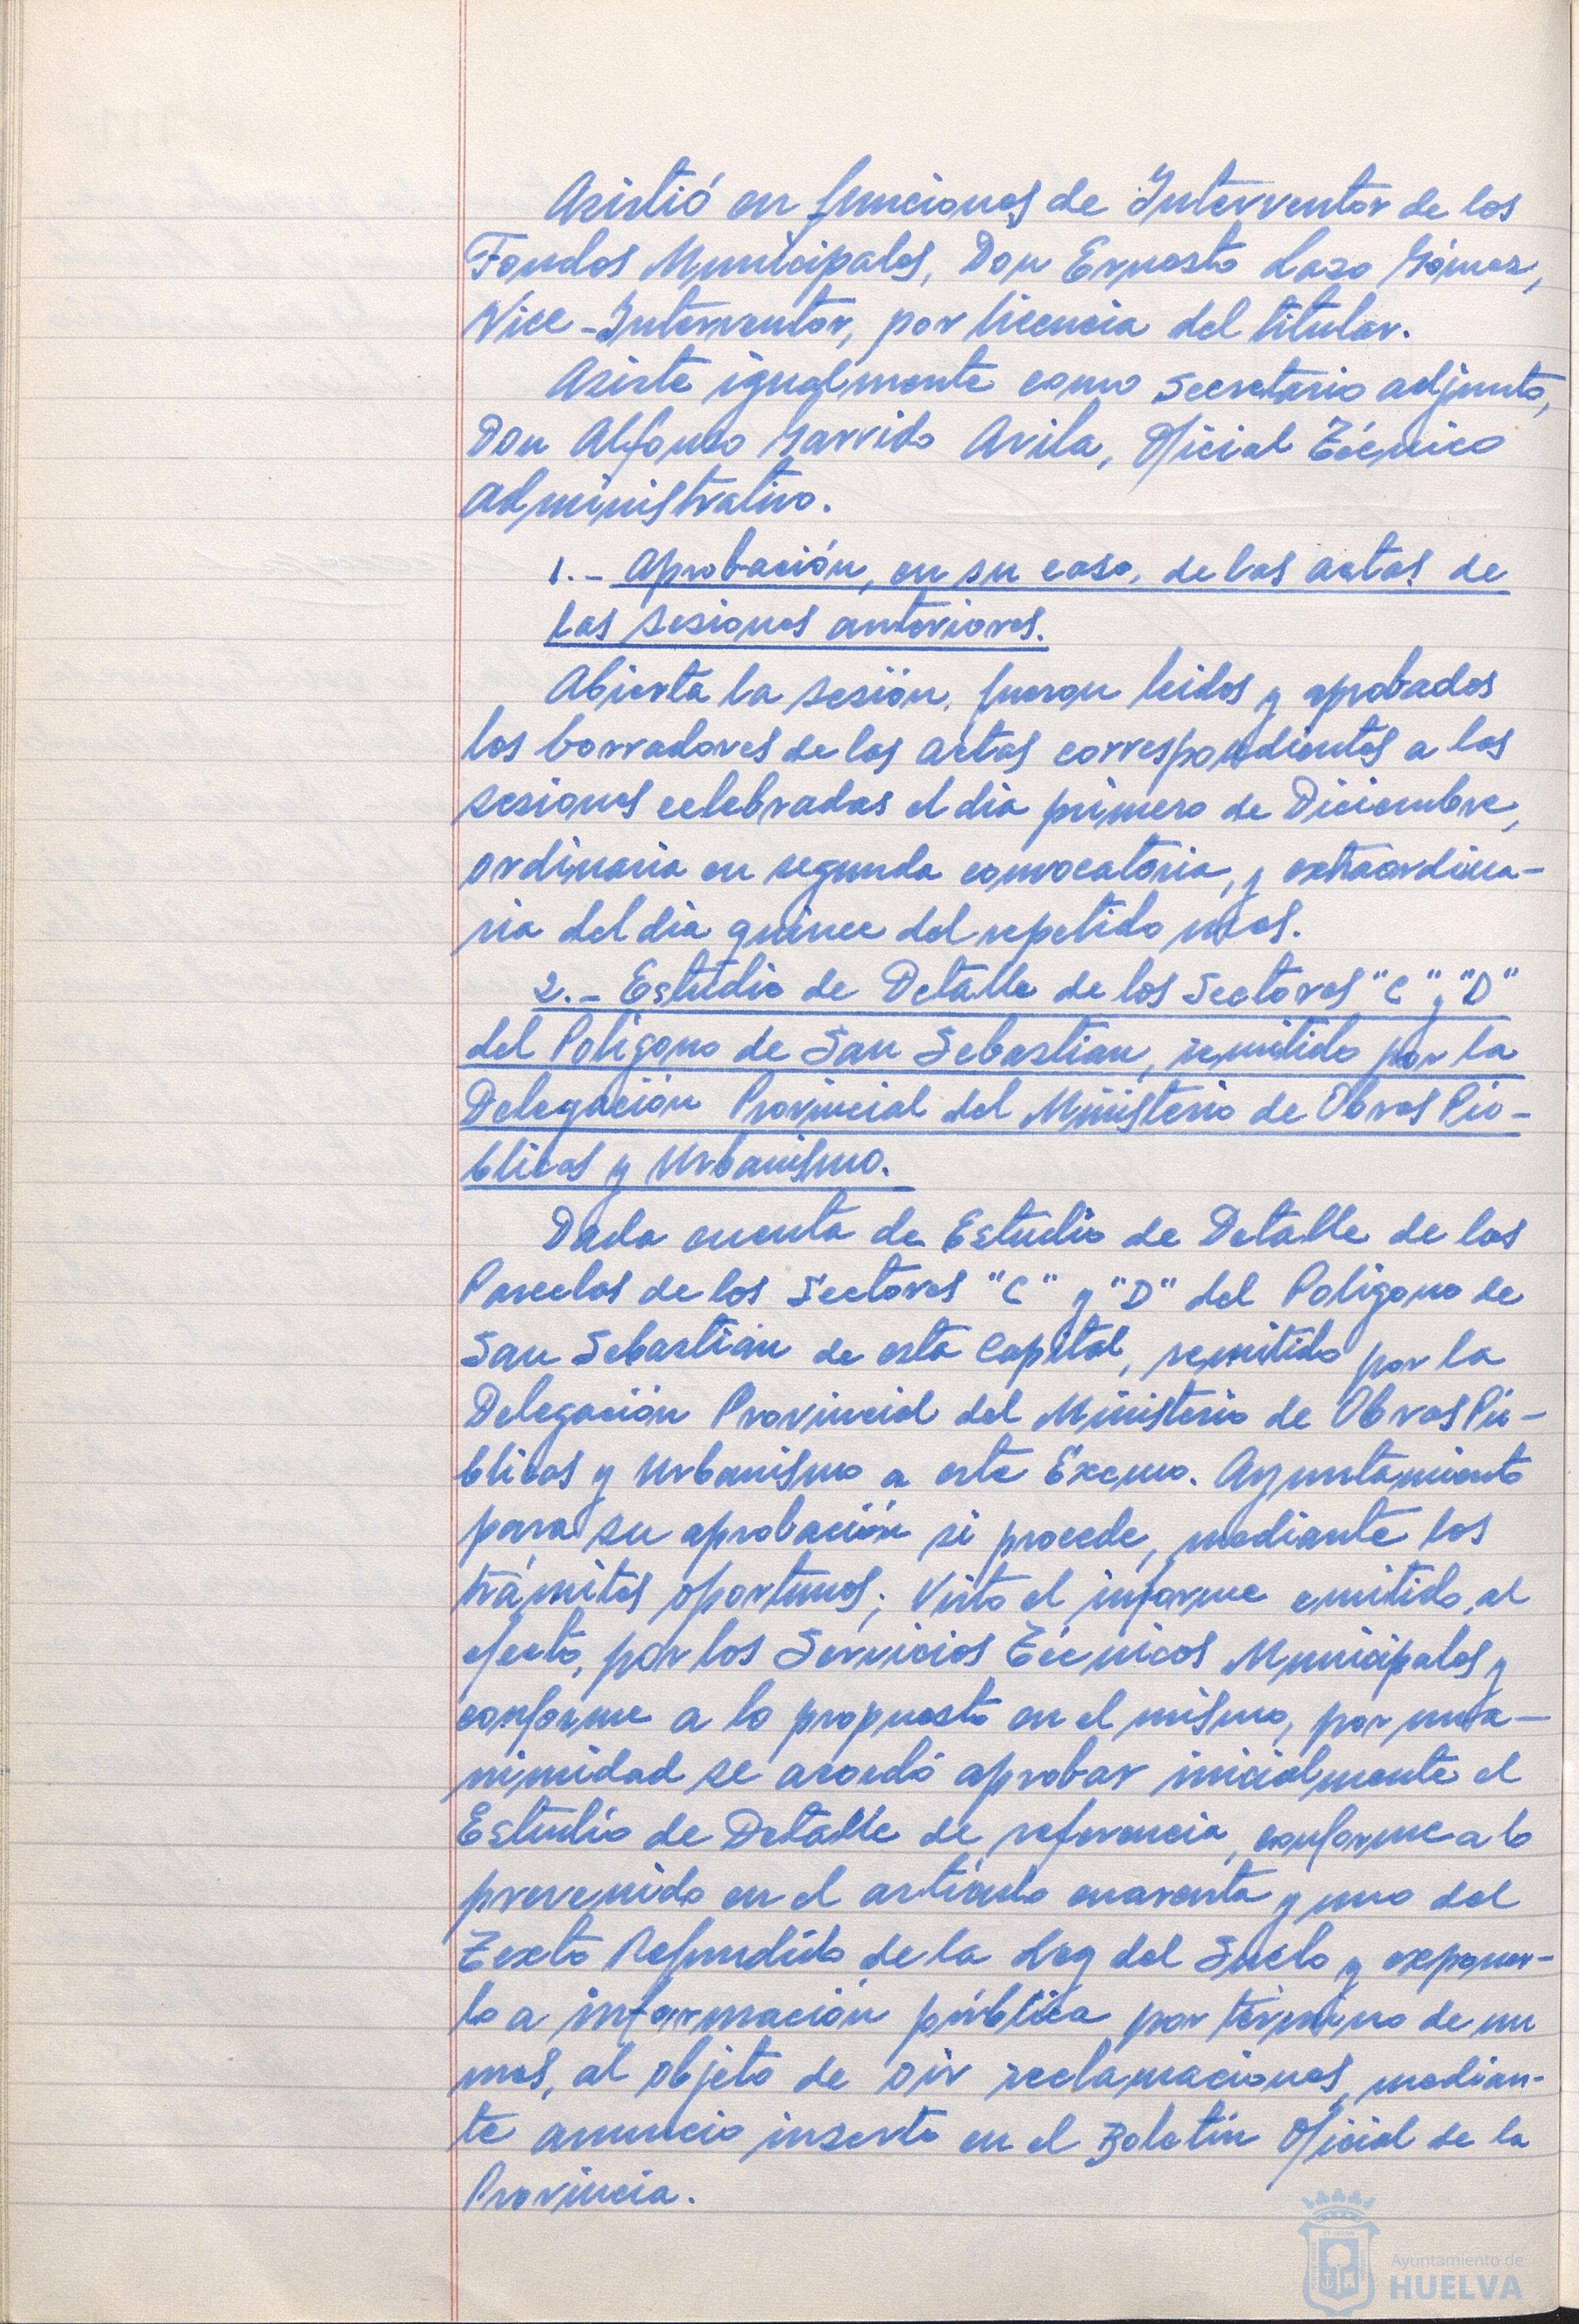 Asistió en funciones de Interventor de los
Fondos Municipales, Don Ernesto Lazo Gómez,
Vice-Interventor, por licencia del titular.
Asiste igualmente como Secretario adjunto,
Don Alfonso Garrido Avila, Oficial Técnico
Administrativo.
1.- Aprobación, en su caso, de las actas de
las sesiones anteriores.
Abierta la sesión, fueron leidos y aprobados
los borradores de las actas correspondientes a las
sesiones celebradas el dia primero de Diciembre,
ordinaria en segunda convocatoria, y extraordina-
ria del dia quince del repetido mes.
2.- Estudio de Detalle de los Sectores "C" y "D"
del Poligono de San Sebastian, remitido por la
Delegación Provincial del Ministerio de Obras Pú-
blicas y Urbanismo.
Dada cuenta de Estudio de Detalle de las
Parcelas de los Sectores "C" y "D" del Poligono de
San Sebastián de esta Capital, remitido por la
Delegación Provincial del Ministerio de Obras Pú-
blicas y Urbanismo a este Excmo. Ayuntamiento
para su aprobación si procede, mediante los
trámites oportunos; Visto el informe emitido, al
efecto, por los Servicios Técnicos Municipales y
conforme a lo propuesto en el mismo, por una-
nimidad se acordó aprobar inicialmente el
Estudio de Detalle de referencia, conforme a lo
prevenido en el artículo cuarenta y uno del
Texto Refundido de la Ley del Suelo y exponer-
lo a información pública por término de un
mes, al objeto de oir reclamaciones, median-
te anuncio inserto en el Boletín Oficial de la
Provincia.
Ayuntamiento de
HUELVA